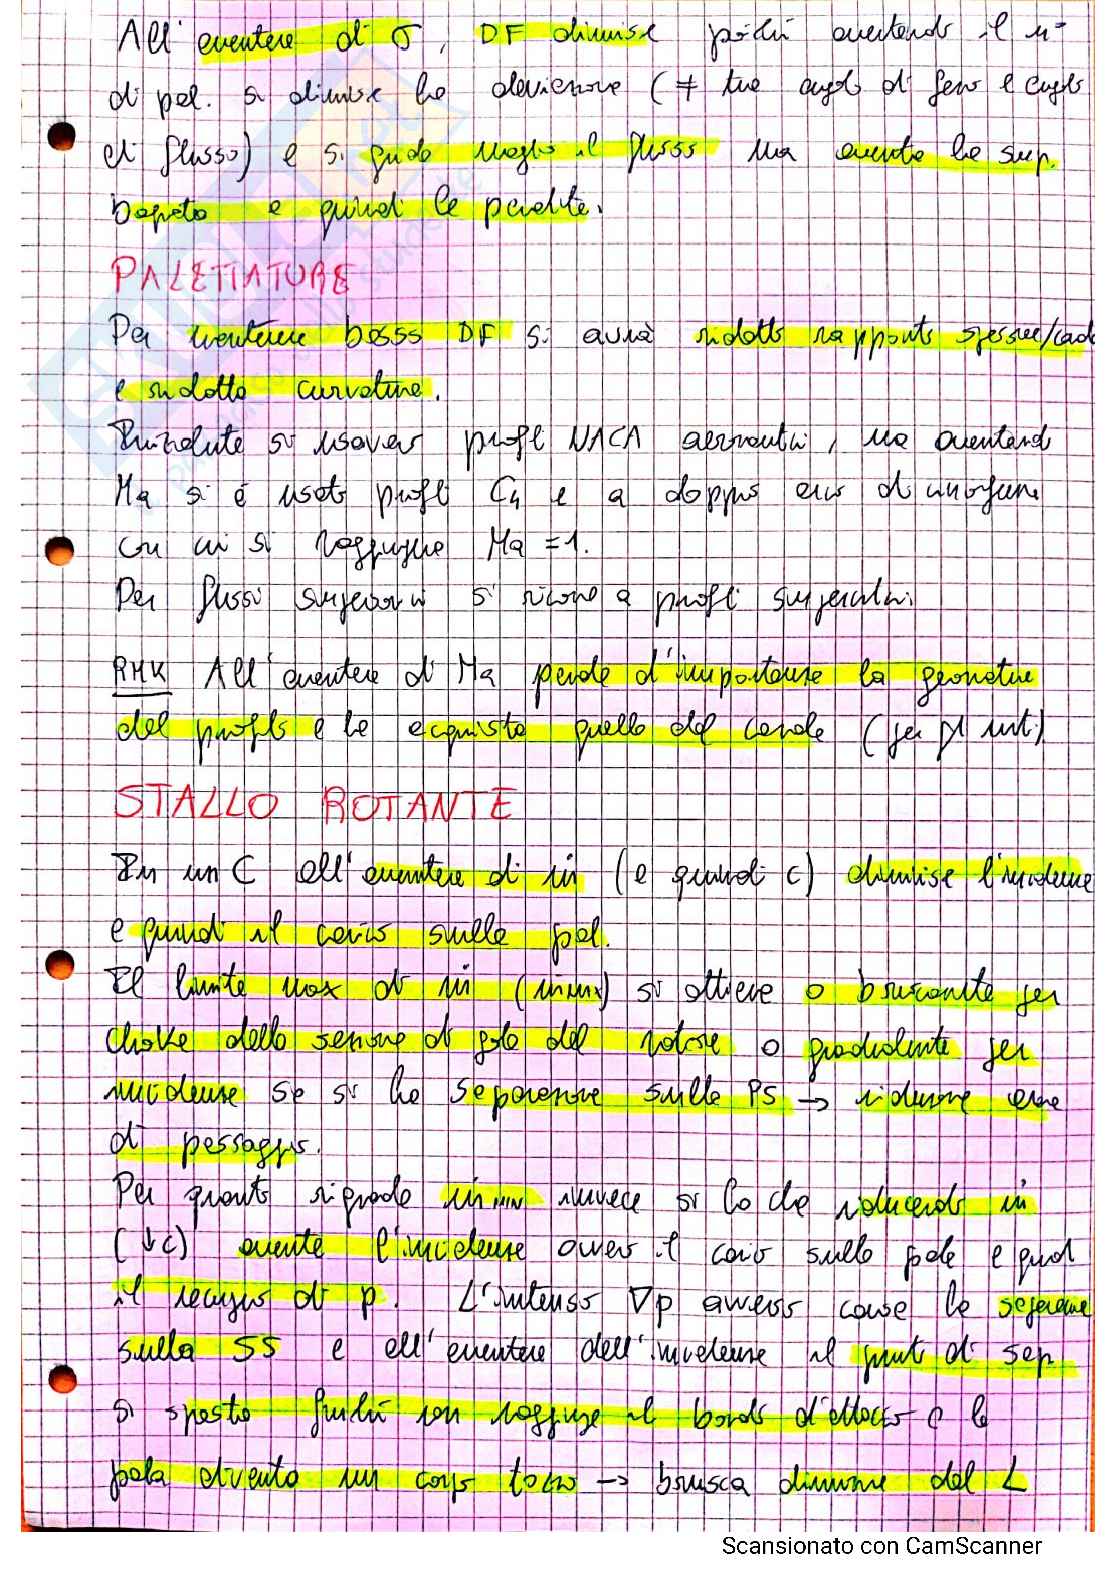 All'aumentare di σ, DF diminuisce poiché aumentando il n°
di pal. si diminuisce la deviazione (≠ tra angolo di fans e angolo
di flusso) e si guida meglio il flusso ma aumenta la sup.
bagnata e quindi le perdite.
PALETTATURE
Per mantenere basso DF si avrà ridotto rapporto spessore/corda
e ridotta curvatura.
Inizialmente si usavano profili NACA aeronautici, ma aumentando
Ma si è usato profili C4 e a doppio arco di circonferenza
con cui si raggiunge Ma = 1.
Per flussi supersonici si ricorre a profili supercritici.
RMK All'aumentare di Ma perde d'importanza la geometria
del profilo e la acquista quella del canale (per gli urti)
STALLO ROTANTE
In un C all'aumentare di ṁ (e quindi c) diminuisce l'incidenza
e quindi il carico sulle pal.
Il limite max di ṁ (ṁmax) si ottiene o bruscamente per
choke della sezione di gola del rotore o gradualmente per
incidenza se si ha separazione sulla PS → riduzione area
di passaggio.
Per quanto riguarda ṁMIN invece si ha che riducendo ṁ
(↓c) aumenta l'incidenza ovvero il carico sulla pala e quindi
il recupero di p. L'intenso ∇p avverso causa la separazione
sulla SS e all'aumentare dell'incidenza il punto di sep.
si sposta finché non raggiunge il bordo d'attacco e la
pala diventa un corpo tozzo → brusca diminuzione del L
Scansionato con CamScanner